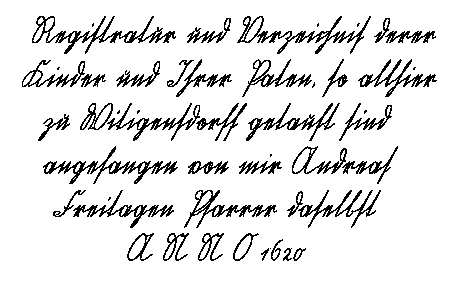 Registratur und Verzeichnis derer
Kinder und Ihrer Paten, so allhier
zu Witigensdorff getauft sind
angefangen von mir Andreas
Freitagen Pfarrer daselbst
A N N O 1620